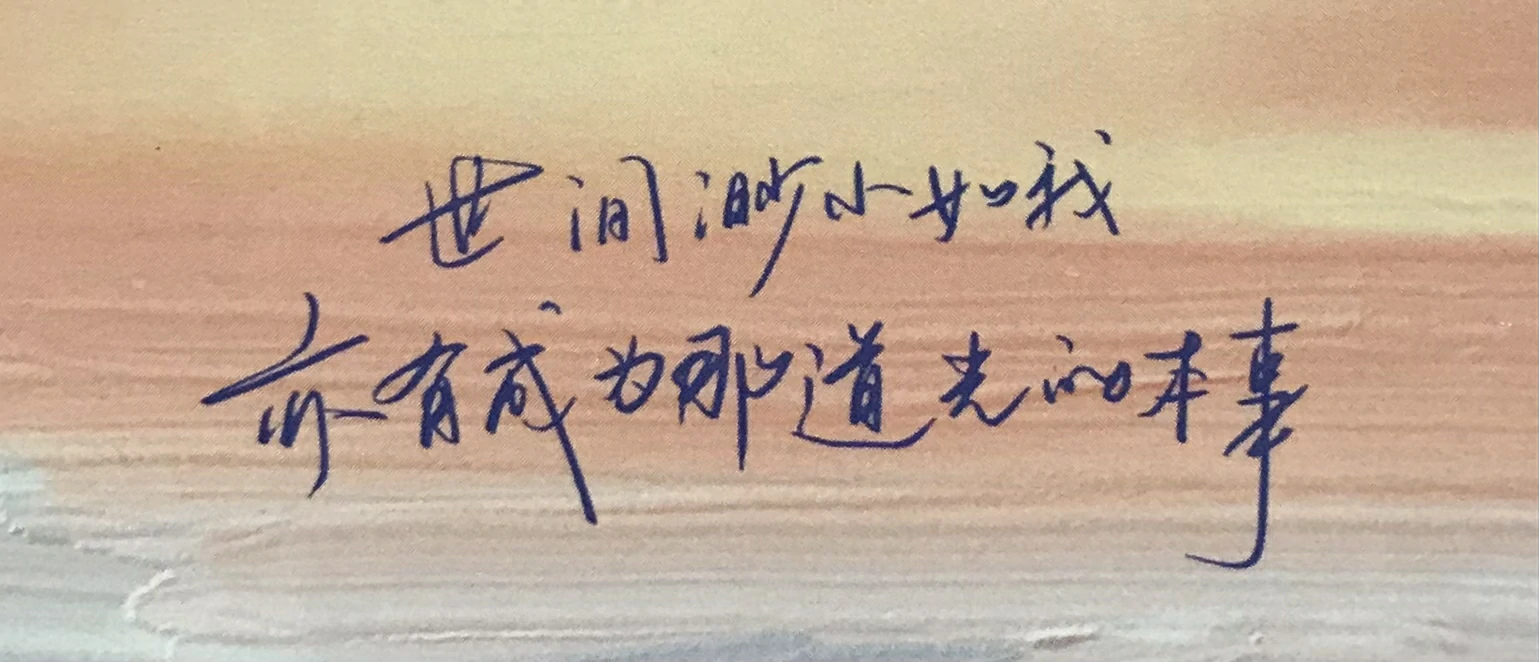 世间渺小如我
亦有成为那道光的本事